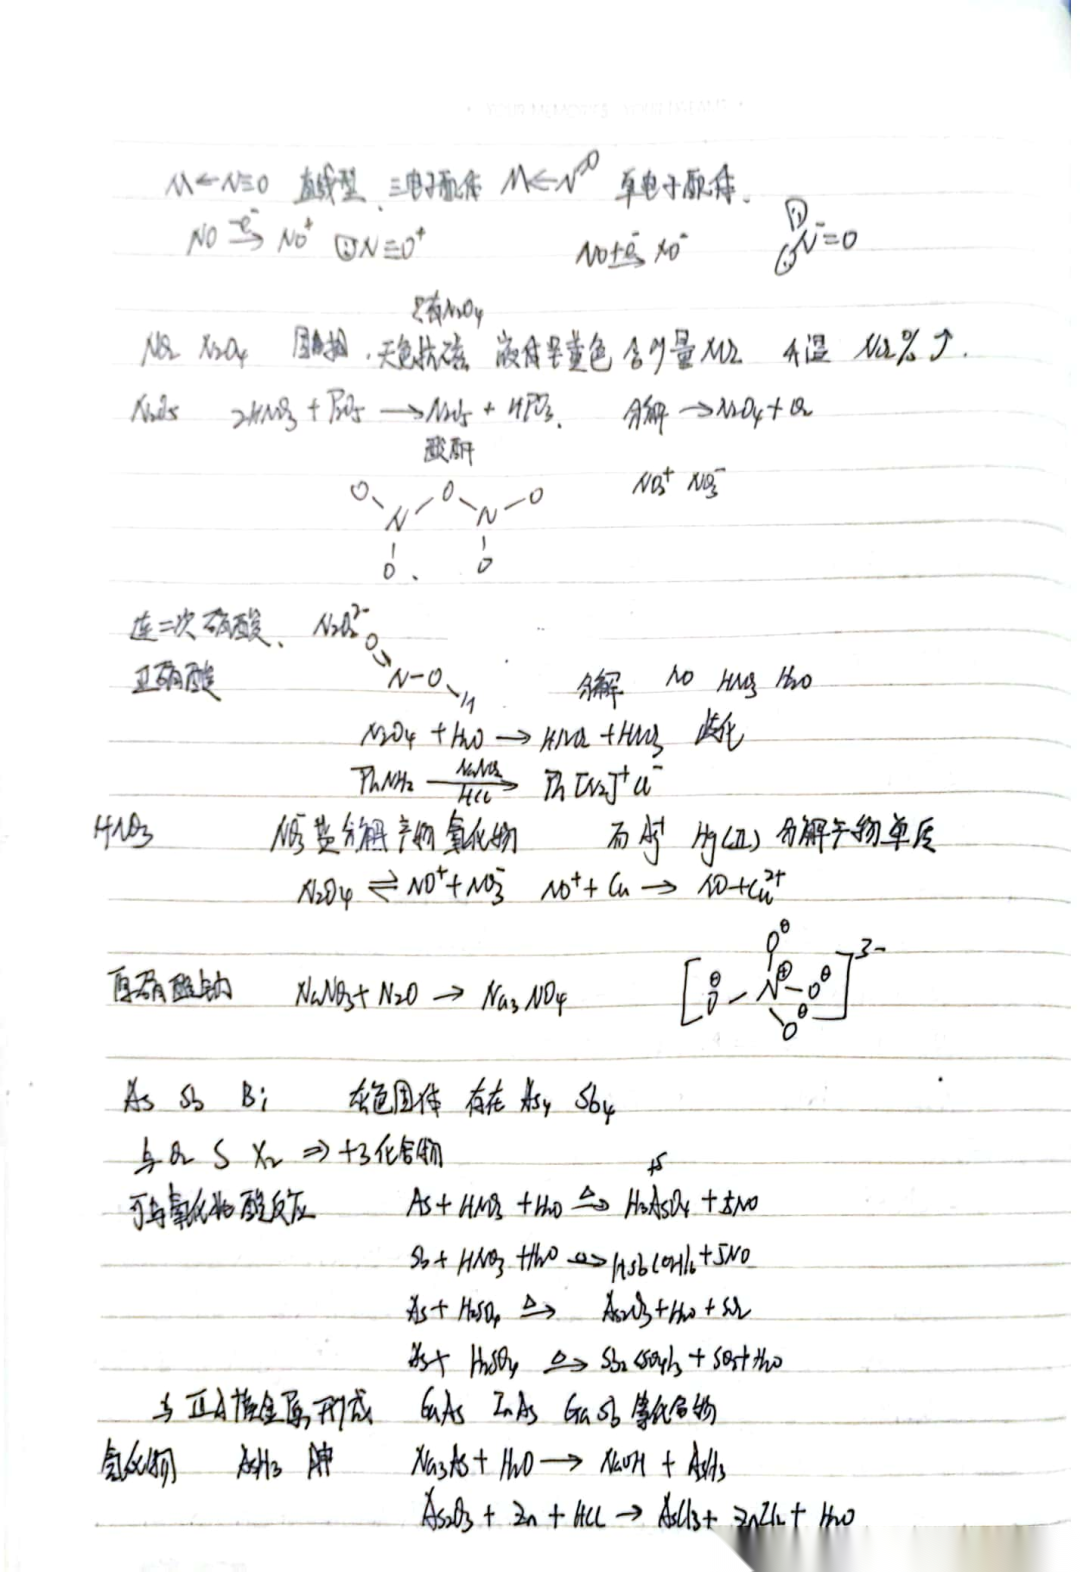 M←N≡O 直线型、三电子配体 M←N=O 单电子配体.
NO -e⁻→ NO⁺ :N≡O⁺ NO+e⁻→ NO⁻ N⁻=O
只有N₂O₄
NO₂ N₂O₄ 固体抗,无色抗磁 液体呈黄色 含少量NO₂ 升温 NO₂%↑.
N₂O₅ 2HNO₃ + P₂O₅ → N₂O₅ + HPO₃. 分解 → N₂O₄ + O₂
酸酐
NO₃⁺ NO₃⁻
O O O
N N
O. O
连二次硝酸、 N₂O₂²⁻
亚硝酸 O N-O H 分解 NO HNO₃ H₂O
N₂O₄ + H₂O → HNO₂ + HNO₃ 歧化
PhNH₂ NaNO₂ HCl → Ph[N₂]⁺Cl⁻
HNO₃ NO₃⁻盐分解产物氧化物 而Ag⁺ Hg(II) 分解产物单质
N₂O₄ ⇌ NO⁺+NO₃⁻ NO⁺+Cu → NO+Cu²⁺
原硝酸钠 NaNO₃ + N₂O → Na₃NO₄ [O⊖-N⊕-O⊖ O⊖ O⊖]³⁻
As Sb Bi 灰色固体 存在 As₄ Sb₄
与O₂ S X₂ ⇒ +3化合物
+5
可与氧化性酸反应 As + HNO₃ + H₂O △→ H₃AsO₄ + 5NO
Sb + HNO₃ + H₂O △→ HSb(OH)₆ + 5NO
As + H₂SO₄ △→ As₂O₃ + H₂O + SO₂
As + H₂SO₄ △→ Sb₂(SO₄)₃ + SO₂ + H₂O
与ⅢA族金属形成 GaAs InAs GaSb 等化合物
氢化物 AsH₃ 胂 Na₃As + H₂O → NaOH + AsH₃
As₂O₃ + Zn + HCl → AsH₃ + ZnCl₂ + H₂O